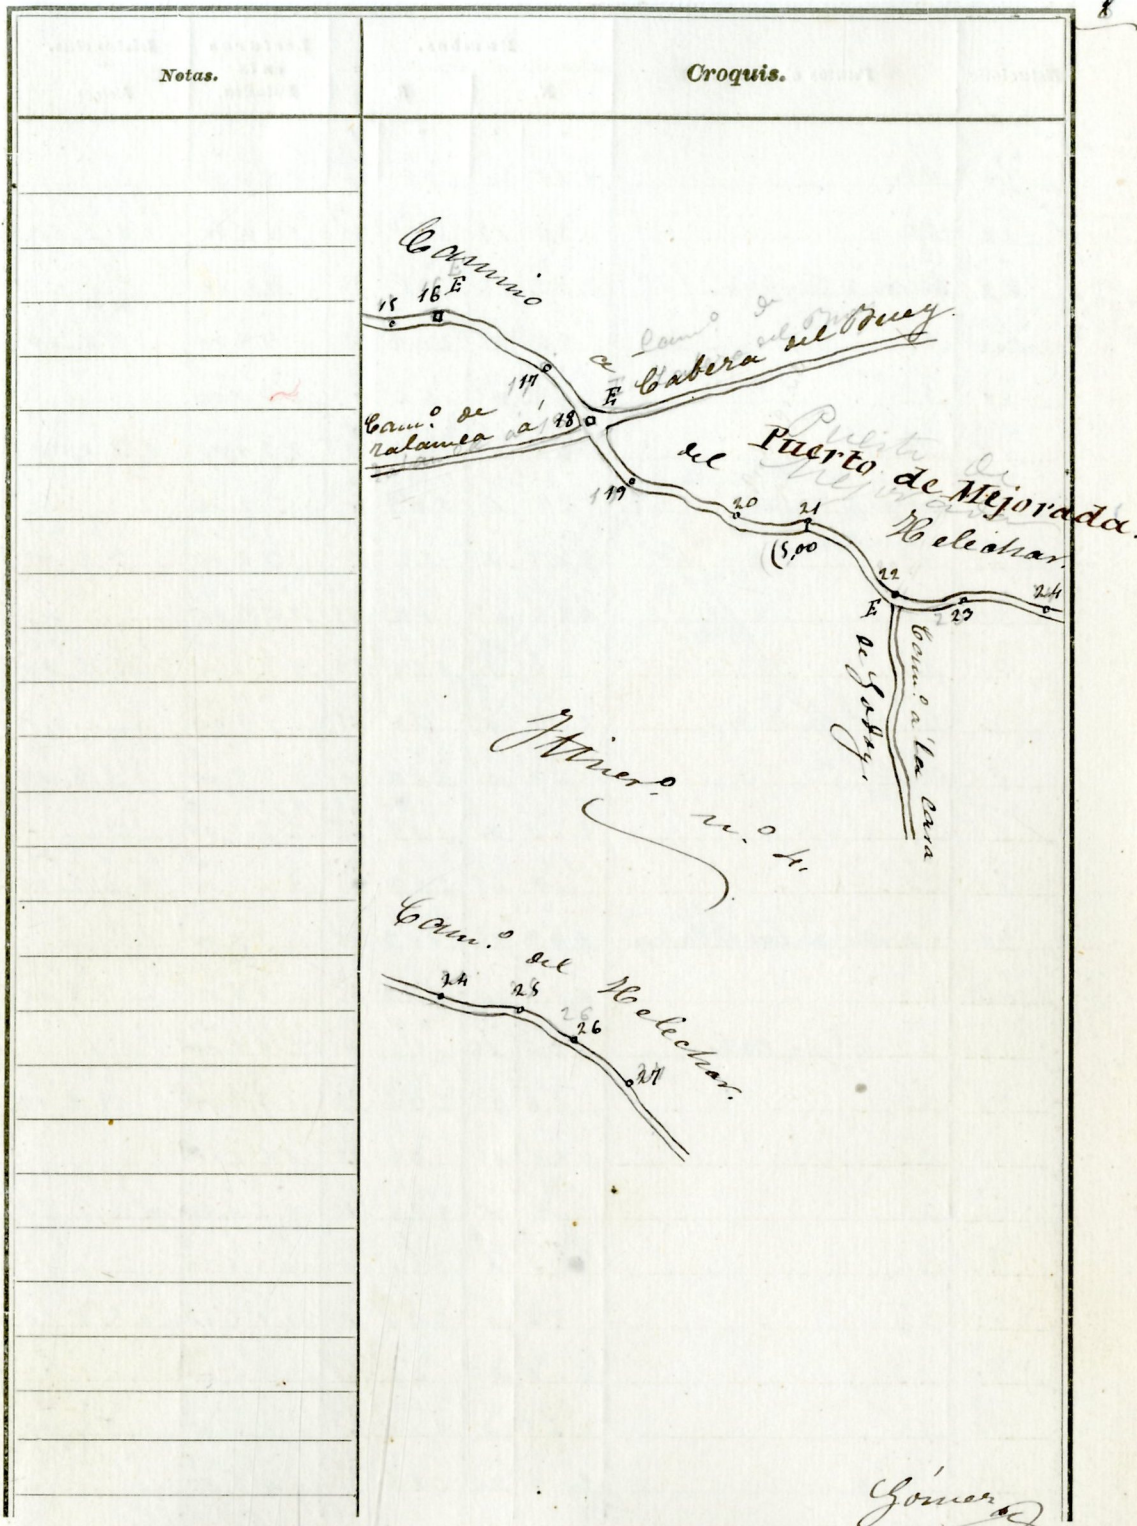 8
Notas.
Croquis.
Camino
15
16
E
17
a Cabeza del Buey.
E
Cam.º de
Zalamea á
18
del Puerto de Mejorada.
19
20
21
(5,00
Helechar.
22
E
23
24
Cam.º a la Casa
de Godoy.
Itiner.º n.º 4.
Cam.º del Helechar.
24
25
26
27
Gómez